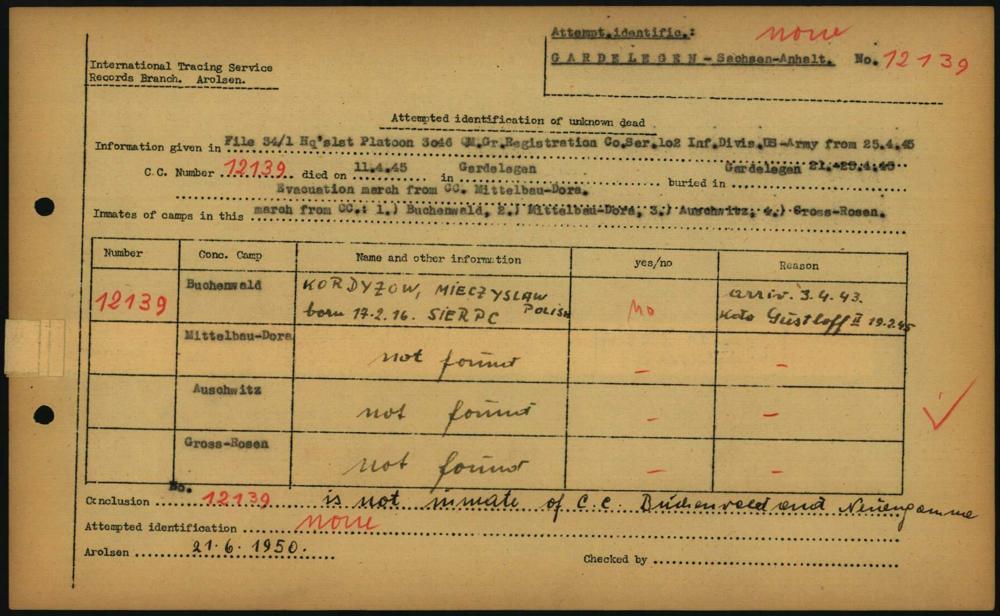 Attempt.identific.: none
International Tracing Service
Records Branch. Arolsen.
GARDELEGEN - Sachsen-Anhalt. No. 12139
Attempted identification of unknown dead
Information given in File 34/1 Hq's1st Platoon 3046 QM.Gr.Registration Co.Ser.1o2 Inf.Divis.US-Army from 25.4.45
C.C. Number 12139 died on 11.4.45 in Gardelegen buried in Gardelegen 21.-25.4.45
Evacuation march from CC. Mittelbau-Dora.
Inmates of camps in this march from CC.: 1.) Buchenwald, 2.) Mittelbau-Dora, 3.) Auschwitz, 4.) Gross-Rosen.
Number Conc. Camp Name and other information yes/no Reason
12139 Buchenwald KORDYZOW, MIECZYSLAW no arriv. 3.4.43.
born 17.2.16. SIERPC POLISH Kdo Gustloff II 19.2.45
Mittelbau-Dora not found - -
Auschwitz not found - -
Gross-Rosen not found - -
Conclusion No. 12139 is not inmate of C.C. Buchenwald and Neuengamme
Attempted identification none
Arolsen 21.6.1950. Checked by